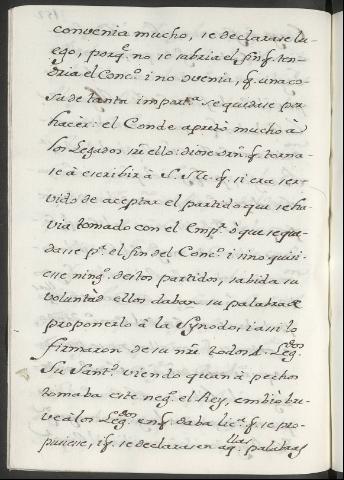 convenia mucho, se declarase lu-
ego, porq.e no se sabria el fin q. ten-
dria el Conc.o i no devenia, q. una co-
sa de tanta import.a se quedase por
hacer: el Conde apretò mucho à
los Legados en ello: diose orn. q. torna-
se à escribir à S. S.te q. si era ser-
vido de aceptar el partido que se ha-
via tomado con el Emp.r ò que se que-
dase p.a el fin del Conc.o i sino quisi-
ese ning.o destos partidos, sabida su
voluntàd ellos daban su palabra de
proponerlo à la Synodo, i assi lo
firmaron de su no. todos 4. Leg.dos
Su Sant.d viendo quan à pechos
tomaba este neg.o el Rey, embio bre-
ve à los Leg.dos en q. daba lic.a q. se pro-
pusiese, i q. se declarasen aq.llas palabras